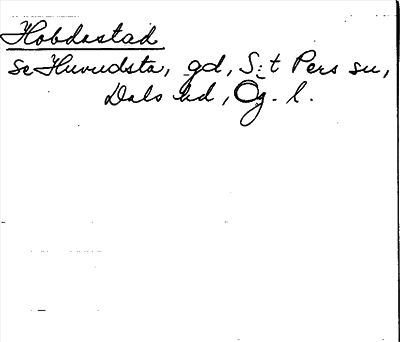 Hobdastad
se Huvudsta, gd, S:t Pers su,
Dals hd, Ög. l.